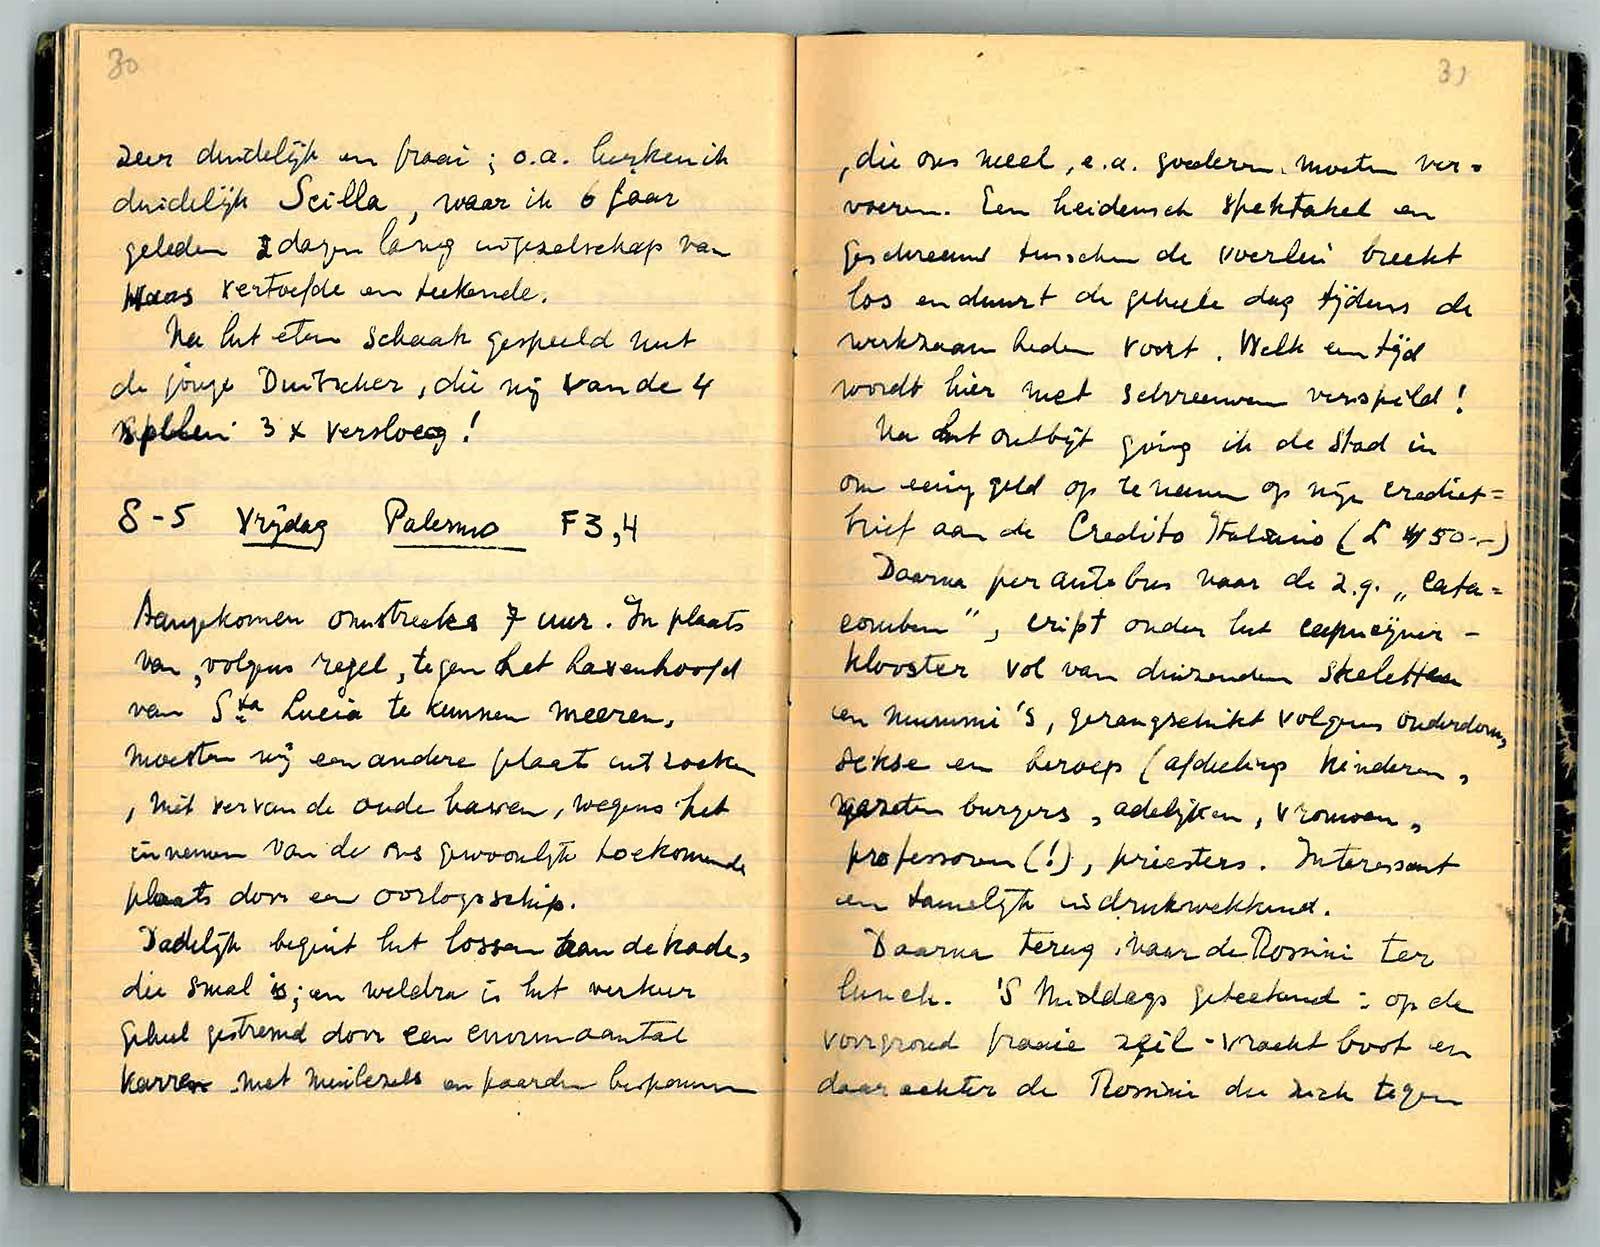 30
zeer duidelijk en fraai ; o.a. herken ik
duidelijk Scilla, waar ik 6 jaar
geleden 2 dagen lang in gezelschap van
Haas vertoefde en teekende.
Na het eten schaak gespeeld met
de jonge Duitscher, die mij van de 4
spellen 3 x versloeg!
8-5 Vrijdag Palermo F3,4
Aangekomen omstreeks 7 uur. In plaats
van, volgens regel, tegen het havenhoofd
van Sta Lucia te kunnen meeren,
moesten wij een andere plaats uitzoeken
, niet ver van de oude haven, wegens het
innemen van de ons gewoonlijk toekomende
plaats door een oorlogsschip.
Dadelijk begint het lossen aan de kade,
die smal is; en weldra is het verkeer
geheel gestremd door een enorm aantal
karren met muilezels en paarden bespannen
31
, die ons meel, e.a. goederen moeten ver=
voeren. Een heidensch spektakel en
geschreeuw tusschen de voerlui breekt
los en duurt de geheele dag tijdens de
werkzaamheden voort. Welk een tijd
wordt hier met schreeuwen verspild!
Na het ontbijt ging ik de stad in
om eenig geld op te nemen op mijn crediet=
brief aan de Credito Italiano (£ 50.-)
Daarna per autobus naar de z.g. „cata=
comben", cript onder het capucijner-
klooster vol van duizenden skeletten
en mummi's, gerangschikt volgens ouderdom,
sekse en beroep (afdeeling kinderen,
burgers, adelijken, vrouwen,
professoren (!), priesters. Interessant
en tamelijk indrukwekkend.
Daarna terug naar de Rossini ter
lunch. 'S Middags geteekend : op de
voorgrond fraaie zeil-vracht boot en
daarachter de Rossini die zich tegen